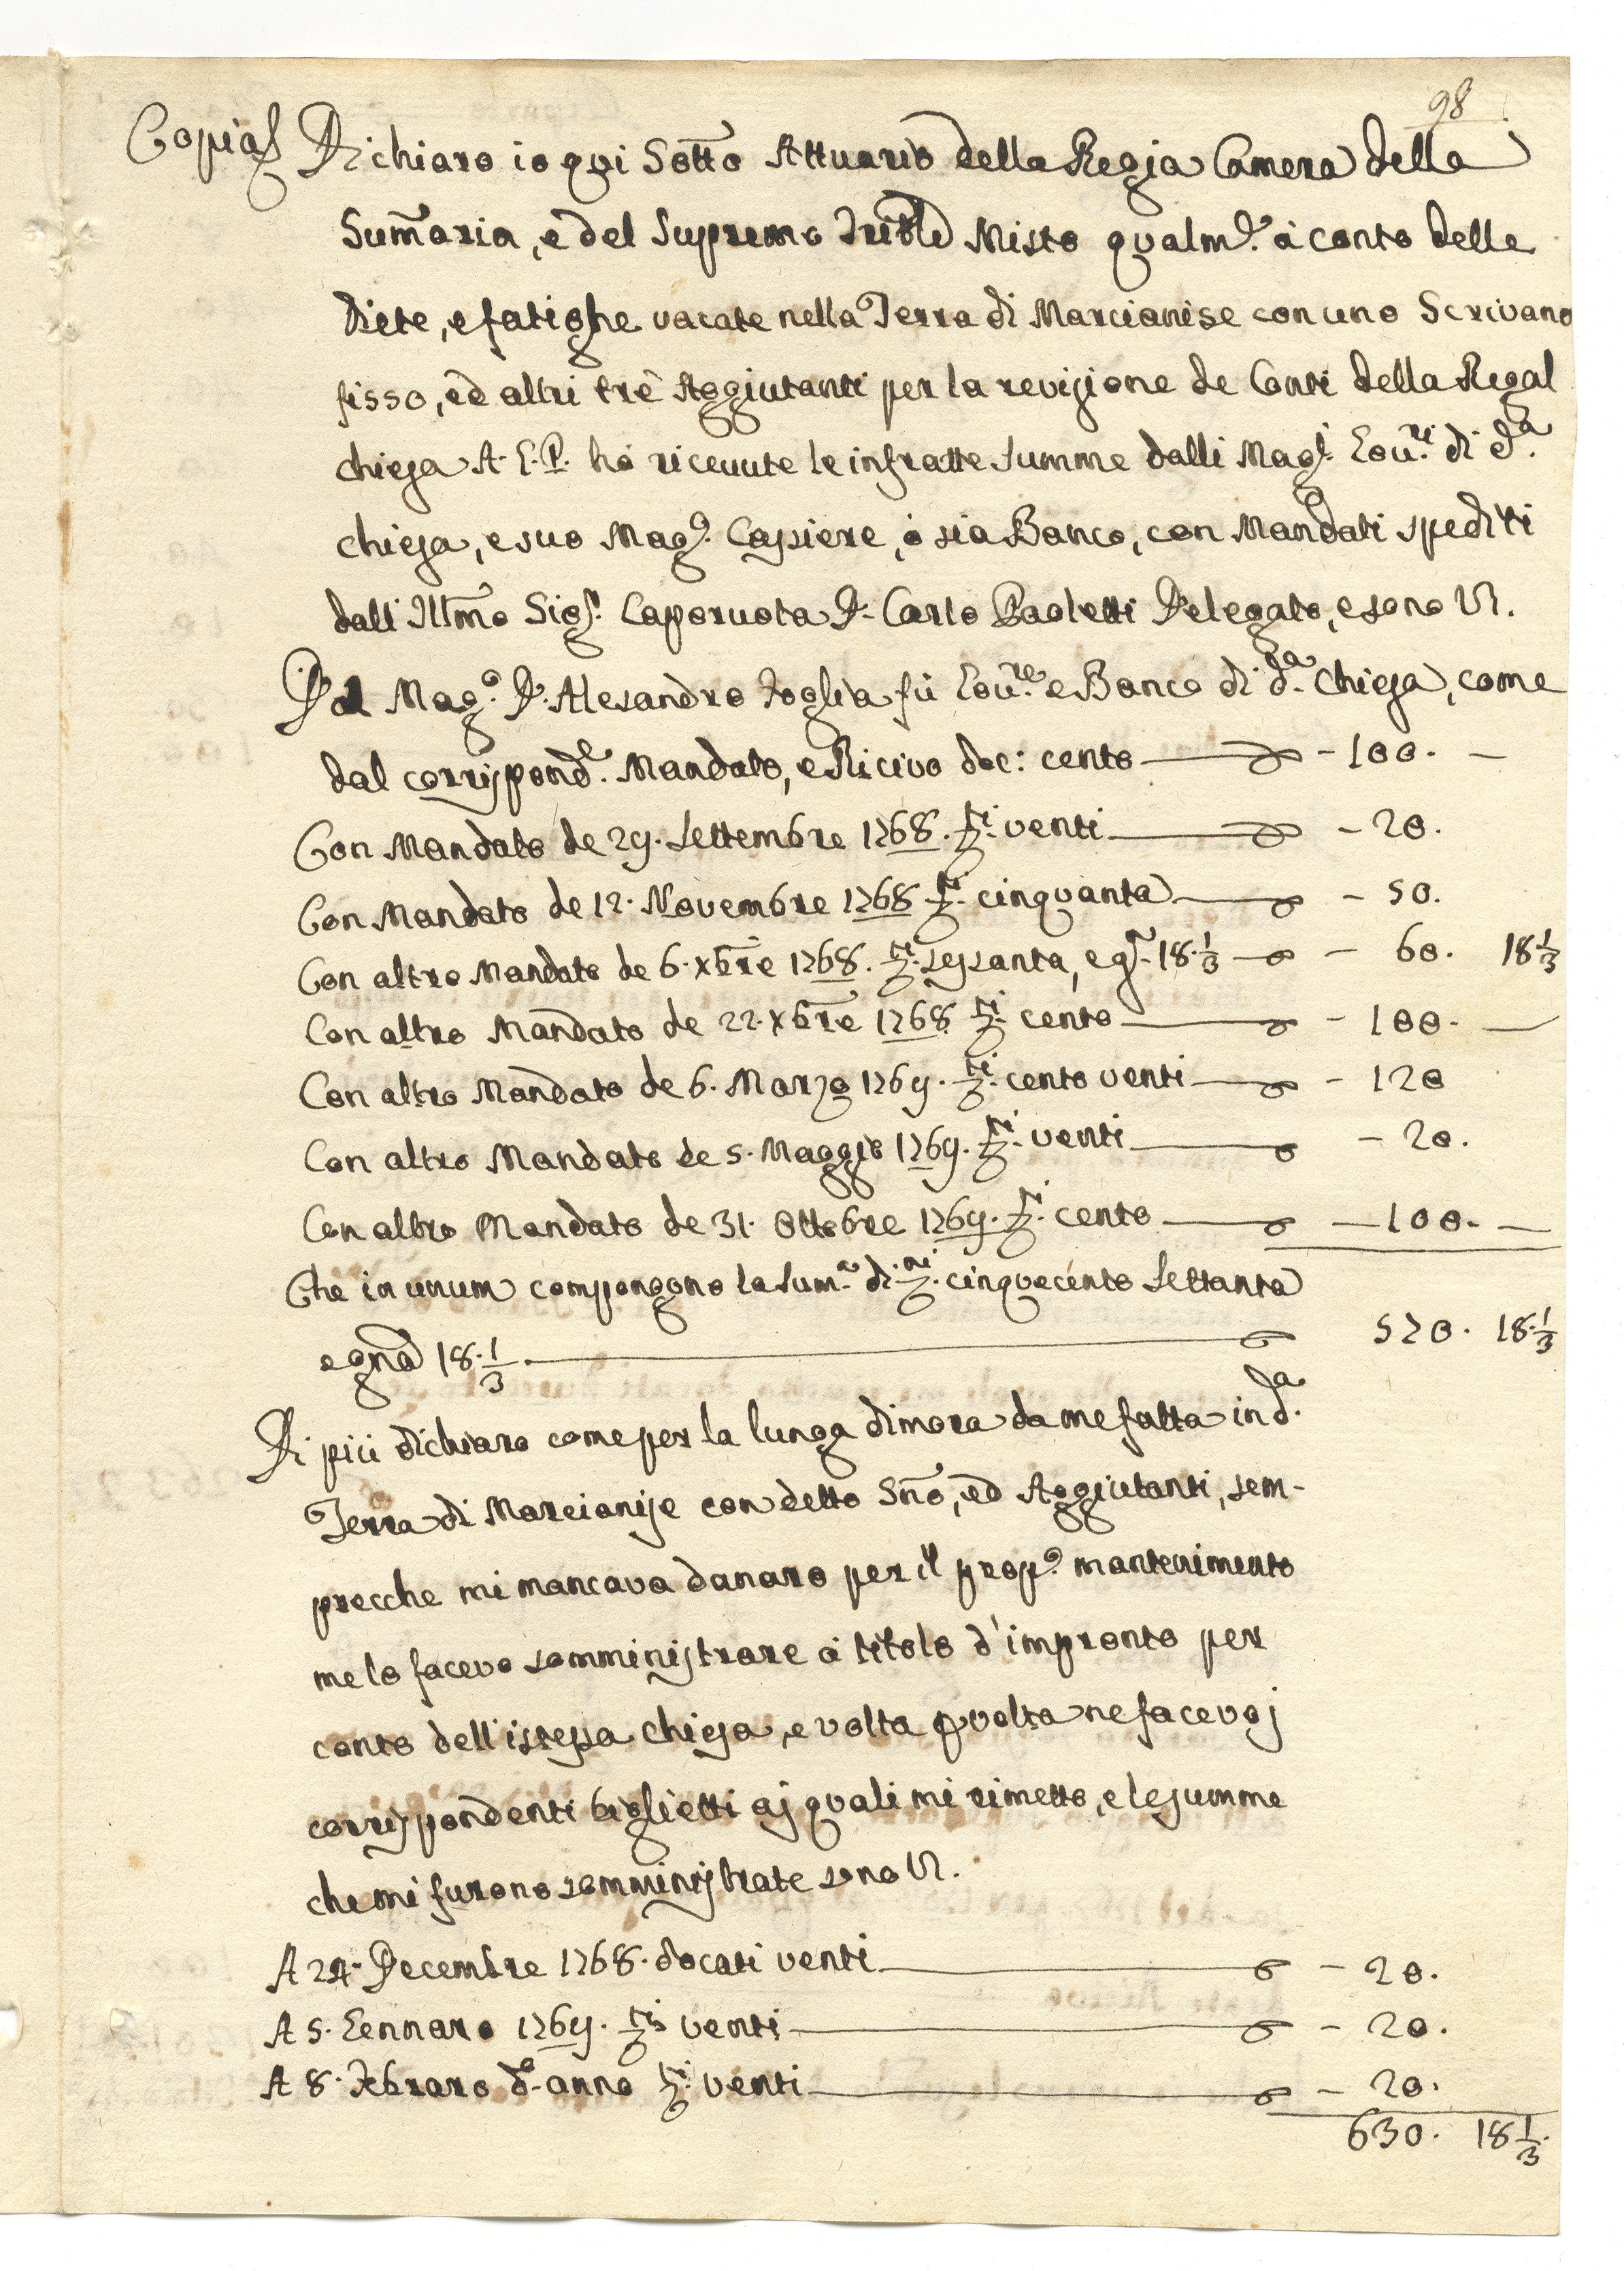 98
Copia Dichiaro io qui Sotto Attuario della Regia Camera della
Sum̃aria, e del Supremo Trib.le Misto qualm.e à conto delle
diete, e fatighe vacate nella Terra di Marcianise con uno Scrivano
fisso, ed altri trè Aggiutanti per la revisione de Conti della Regal
chiesa A. G. P. hò ricevute le infratte summe dalli Mag.i Gov.ri di d.a
chiesa, e suo Mag.o Cassiere, ò sia Banco, con Mandati spediti
dall'Ill̃mo Sig.r Caporuota D. Carlo Paoletti Delegato, e sono Vt.
Dal Mag.o D. Alesandro Foglia fù Gov.re e Banco di d.a chiesa, come
dal correspond.e Mandato, e Ricivo doc: cento - 100. —
Con Mandato de 29. Settembre 1768. d.ti venti - 20.
Con Mandato de 12. Novembre 1768 d.ti cinquanta - 50.
Con altro Mandato de 6. xb̃re 1768. d.ti sessanta, e g.a 18.1/3 - 60. 18 1/3
Con altro Mandato de 22. xb̃re 1768 d.ti cento - 100. —
Con altro Mandato de 6. Marzo 1769. d.ti cento venti - 120
Con altro Mandato de 5. Maggio 1769. d.ti venti - 20.
Con altro Mandato de 31. Ottobre 1769. d.ti cento - 100. —
Che in unum compongono la sum.a di d.ti cinquecento settanta
e gña 18.1/3 570. 18.1/3
Di più dichiaro come per la lunga dimora da me fatta in d.a
Terra di Marcianise con detto Sño, ed Aggiutanti, sem-
precche mi mancava danaro per il prop.o mantenimento
me lo facevo somministrare à titolo d'impronto per
conto dell'istessa chiesa, e volta p volta ne facevo j
correspondenti biglietti aj quali mi rimetto, e le summe
che mi furono somministrate sono Vt.
A 24. Decembre 1768. docati venti - 20.
A 5. Gennaro 1769. d.ti venti - 20.
A 8. Febraro d.o anno d.ti venti - 20.
630. 18 1/3.